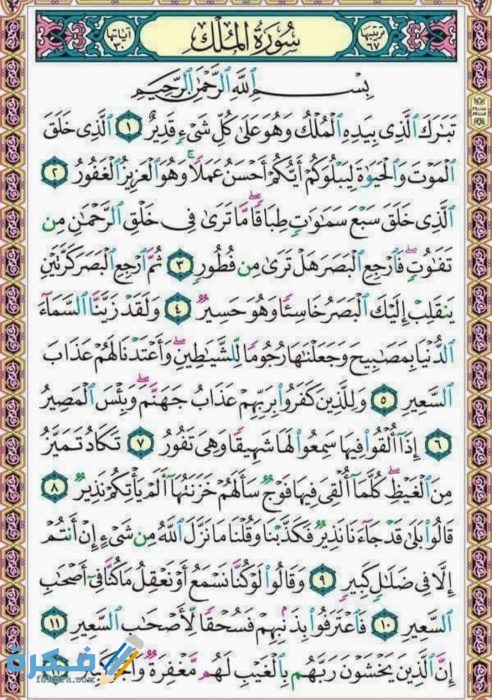 ترتيبها ٦٧ سُورَةُ الْمُلْكِ آياتها ٣٠
بِسْمِ اللَّهِ الرَّحْمَٰنِ الرَّحِيمِ
تَبَارَكَ الَّذِي بِيَدِهِ الْمُلْكُ وَهُوَ عَلَىٰ كُلِّ شَيْءٍ قَدِيرٌ ١ الَّذِي خَلَقَ
الْمَوْتَ وَالْحَيَاةَ لِيَبْلُوَكُمْ أَيُّكُمْ أَحْسَنُ عَمَلًا وَهُوَ الْعَزِيزُ الْغَفُورُ ٢
الَّذِي خَلَقَ سَبْعَ سَمَاوَاتٍ طِبَاقًا مَّا تَرَىٰ فِي خَلْقِ الرَّحْمَٰنِ مِن
تَفَاوُتٍ فَارْجِعِ الْبَصَرَ هَلْ تَرَىٰ مِن فُطُورٍ ٣ ثُمَّ ارْجِعِ الْبَصَرَ كَرَّتَيْنِ
يَنقَلِبْ إِلَيْكَ الْبَصَرُ خَاسِئًا وَهُوَ حَسِيرٌ ٤ وَلَقَدْ زَيَّنَّا السَّمَاءَ
الدُّنْيَا بِمَصَابِيحَ وَجَعَلْنَاهَا رُجُومًا لِّلشَّيَاطِينِ وَأَعْتَدْنَا لَهُمْ عَذَابَ
السَّعِيرِ ٥ وَلِلَّذِينَ كَفَرُوا بِرَبِّهِمْ عَذَابُ جَهَنَّمَ وَبِئْسَ الْمَصِيرُ
٦ إِذَا أُلْقُوا فِيهَا سَمِعُوا لَهَا شَهِيقًا وَهِيَ تَفُورُ ٧ تَكَادُ تَمَيَّزُ
مِنَ الْغَيْظِ كُلَّمَا أُلْقِيَ فِيهَا فَوْجٌ سَأَلَهُمْ خَزَنَتُهَا أَلَمْ يَأْتِكُمْ نَذِيرٌ ٨
قَالُوا بَلَىٰ قَدْ جَاءَنَا نَذِيرٌ فَكَذَّبْنَا وَقُلْنَا مَا نَزَّلَ اللَّهُ مِن شَيْءٍ إِنْ أَنتُمْ
إِلَّا فِي ضَلَالٍ كَبِيرٍ ٩ وَقَالُوا لَوْ كُنَّا نَسْمَعُ أَوْ نَعْقِلُ مَا كُنَّا فِي أَصْحَابِ
السَّعِيرِ ١٠ فَاعْتَرَفُوا بِذَنبِهِمْ فَسُحْقًا لِّأَصْحَابِ السَّعِيرِ ١١
إِنَّ الَّذِينَ يَخْشَوْنَ رَبَّهُم بِالْغَيْبِ لَهُم مَّغْفِرَةٌ وَأَجْرٌ كَبِيرٌ ١٢
فكرة